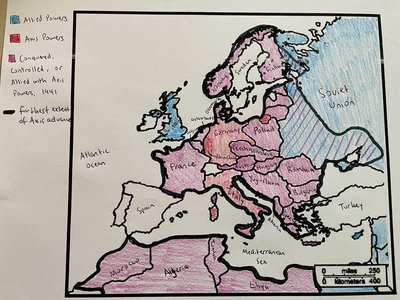 Allied Powers
Axis Powers
Conquered,
Controlled, or
Allied with Axis
Powers, 1941
furthest extent
of Axis advance
Sweden
Soviet
Union
Germany
Poland
Atlantic
ocean
France
Romania
Yugoslavia
Bulgaria
Spain
Turkey
Mediterranean
Sea
Morocco
Algeria
Libya
0 miles 250
0 kilometers 400